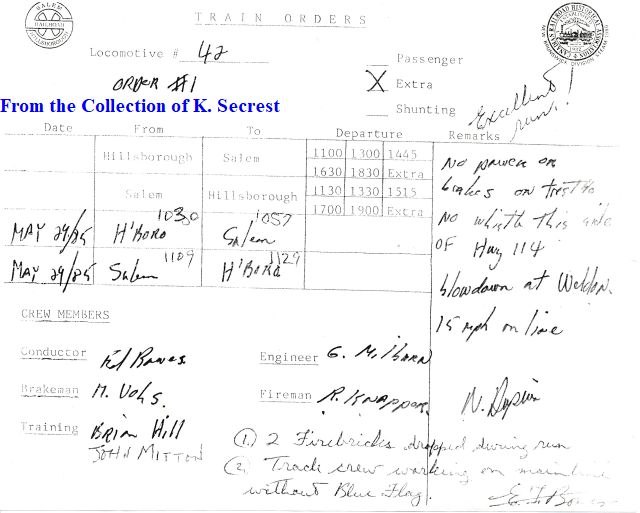 TRAIN ORDERS
SALEM
HILLSBOROUGH
RAILROAD
CANADIAN RAILROAD HISTORICAL ASSOCIATION
NEW BRUNSWICK DIVISION
Locomotive # 42
ORDER #1
Passenger
X Extra
Shunting
Excellent run!
From the Collection of K. Secrest
Date From To Departure Remarks
Hillsborough Salem 1100 1300 1445
1630 1830 Extra
Salem Hillsborough 1130 1330 1515
1700 1900 Extra
MAY 29/85 H'BORO 1030 Salem 1057
MAY 29/85 Salem 1109 H'BORO 1129
No power on
brakes on trestle
No whistle this side
OF Hwy 114
blowdown at Weldon.
15 mph on line
CREW MEMBERS
Conductor Ed Bowes
Engineer G. Milburn
Brakeman M. Vohs.
Fireman R. Knapper
Training Brian Hill
JOHN MITTON
① 2 Firebricks dropped during run
② Track crew working on mainline
without Blue Flag.